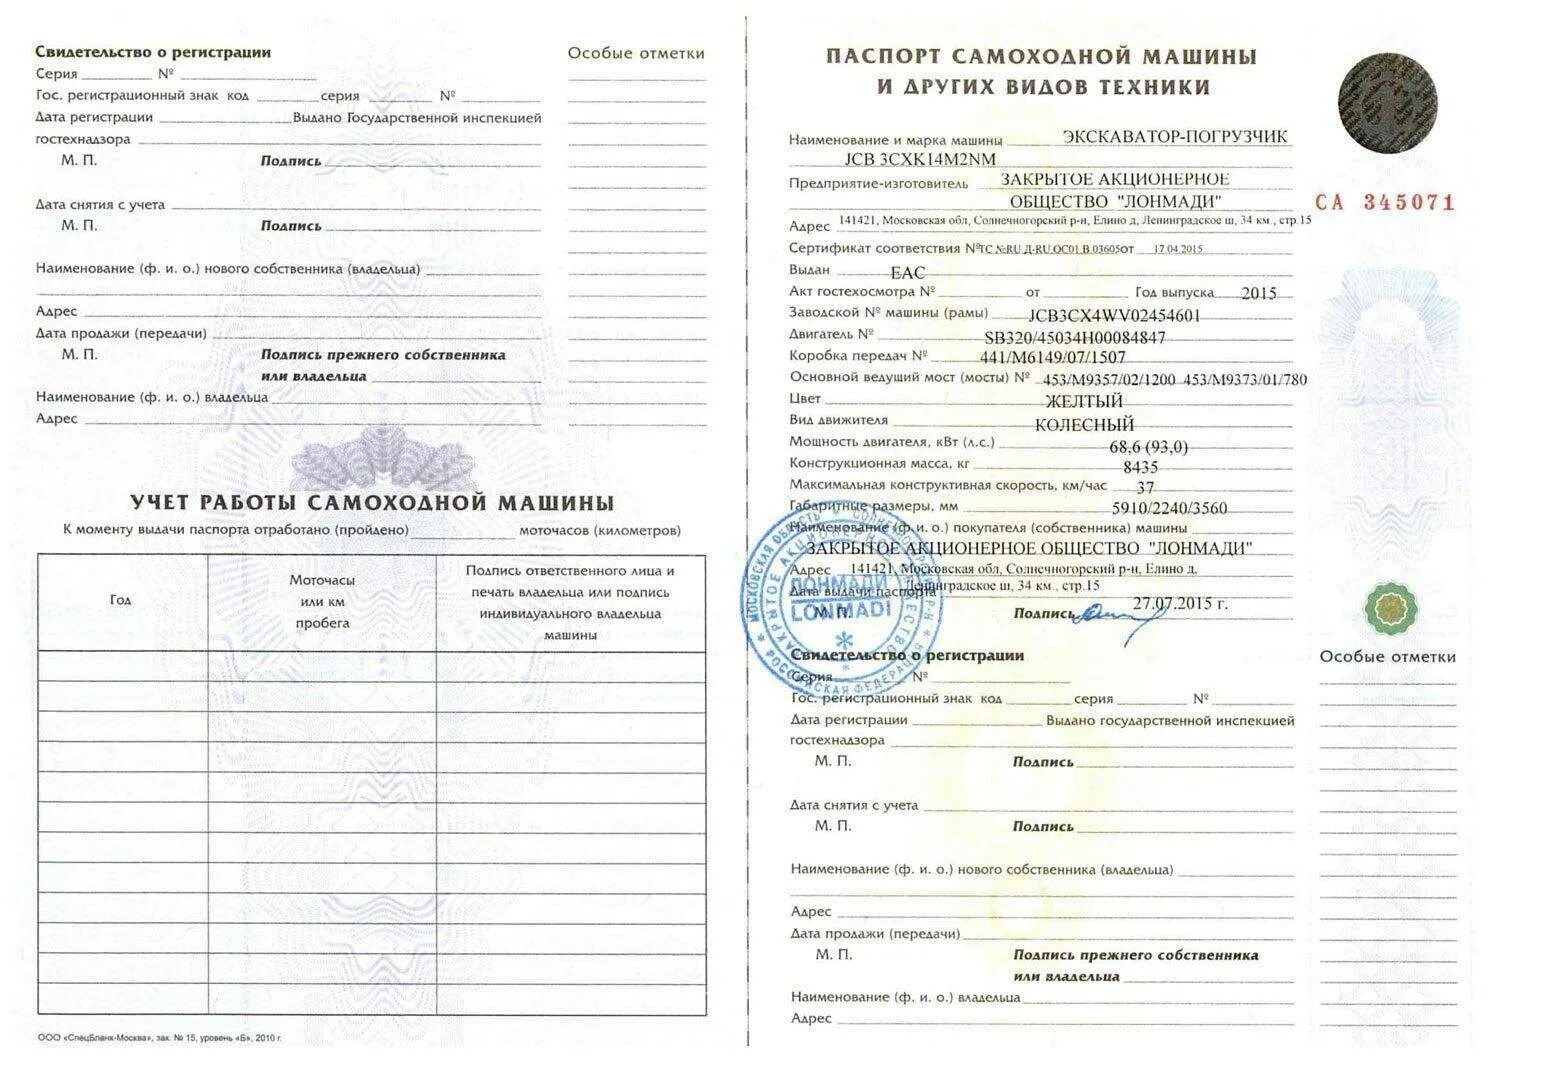 Свидетельство о регистрации
Особые отметки
Серия № 
Гос. регистрационный знак код серия №
Дата регистрации Выдано Государственной инспекцией
гостехнадзора
М. П. Подпись
Дата снятия с учета
М. П. Подпись
Наименование (ф. и. о.) нового собственника (владельца)
Адрес
Дата продажи (передачи)
М. П. Подпись прежнего собственника
или владельца
Наименование (ф. и. о.) владельца
Адрес
УЧЕТ РАБОТЫ САМОХОДНОЙ МАШИНЫ
К моменту выдачи паспорта отработано (пройдено) моточасов (километров)
Год
Моточасы
или км
пробега
Подпись ответственного лица и
печать владельца или подпись
индивидуального владельца
машины
ООО «СпецБланк-Москва», зак. № 15, уровень «Б», 2010 г.
ПАСПОРТ САМОХОДНОЙ МАШИНЫ
И ДРУГИХ ВИДОВ ТЕХНИКИ
Наименование и марка машины ЭКСКАВАТОР-ПОГРУЗЧИК
JCB 3CXK14M2NM
Предприятие-изготовитель ЗАКРЫТОЕ АКЦИОНЕРНОЕ
ОБЩЕСТВО "ЛОНМАДИ"
СА 345071
Адрес 141421, Московская обл, Солнечногорский р-н, Елино д, Ленинградское ш, 34 км., стр.15
Сертификат соответствия №ТС №RU Д-RU.ОС01.В.03605от 17.04.2015
Выдан ЕАС
Акт гостехосмотра № от Год выпуска 2015
Заводской № машины (рамы) JCB3CX4WV02454601
Двигатель № SB320/45034H00084847
Коробка передач № 441/M6149/07/1507
Основной ведущий мост (мосты) № 453/M9357/02/1200 453/M9373/01/780
Цвет ЖЕЛТЫЙ
Вид движителя КОЛЕСНЫЙ
Мощность двигателя, кВт (л.с.) 68,6 (93,0)
Конструкционная масса, кг 8435
Максимальная конструктивная скорость, км/час 37
Габаритные размеры, мм 5910/2240/3560
Наименование (ф. и. о.) покупателя (собственника) машины
ЗАКРЫТОЕ АКЦИОНЕРНОЕ ОБЩЕСТВО "ЛОНМАДИ"
Адрес 141421, Московская обл, Солнечногорский р-н, Елино д,
Ленинградское ш, 34 км., стр.15
Дата выдачи паспорта 27.07.2015 г.
М. П. Подпись
МОСКОВСКАЯ ОБЛАСТЬ * СОЛНЕЧНОГОРСКИЙ Р-Н * РОССИЙСКАЯ ФЕДЕРАЦИЯ *
ЗАКРЫТОЕ АКЦИОНЕРНОЕ ОБЩЕСТВО *
ЛОНМАДИ
LONMADI
Свидетельство о регистрации
Особые отметки
Серия №
Гос. регистрационный знак код серия №
Дата регистрации Выдано государственной инспекцией
гостехнадзора
М. П. Подпись
Дата снятия с учета
М. П. Подпись
Наименование (ф. и. о.) нового собственника (владельца)
Адрес
Дата продажи (передачи)
М. П. Подпись прежнего собственника
или владельца
Наименование (ф. и. о.) владельца
Адрес